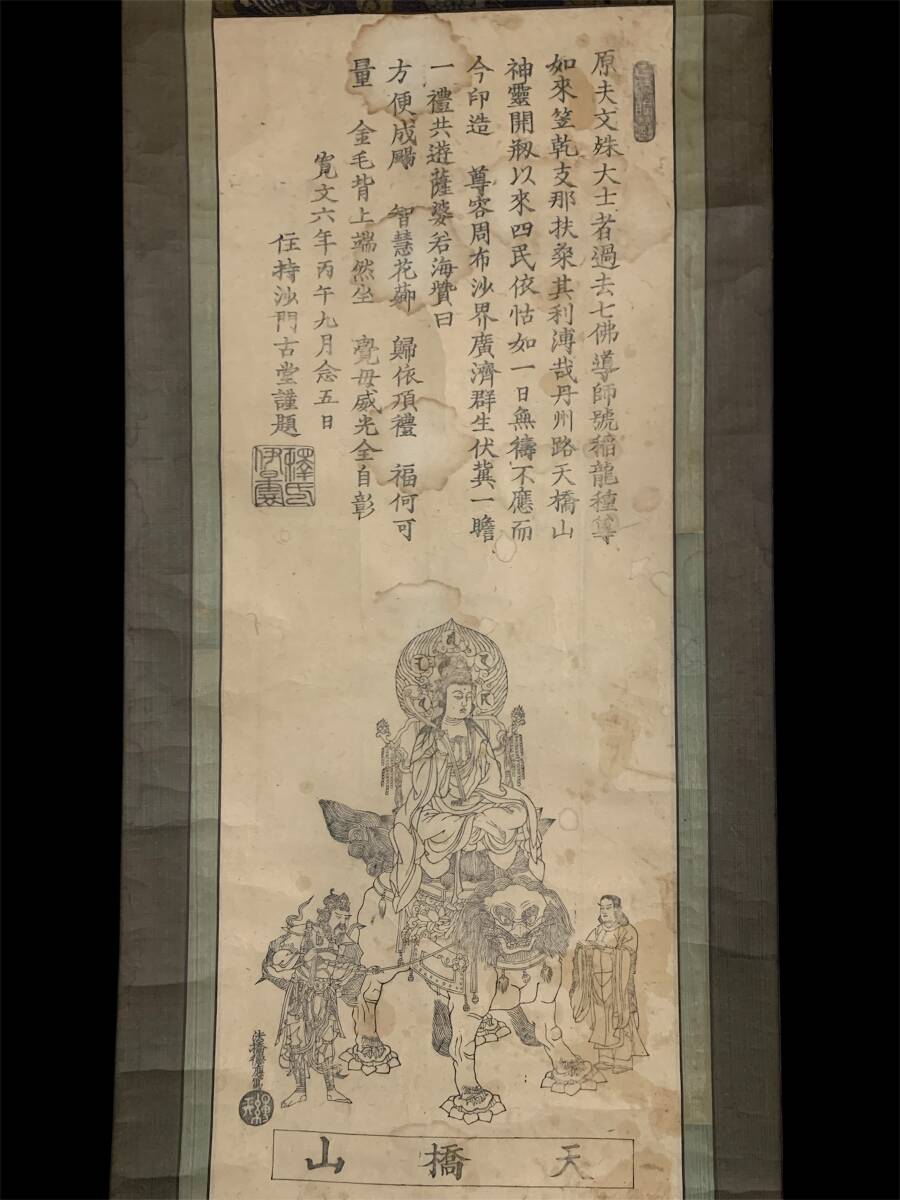 原夫文殊大士者過去七佛導師號稱龍種尊
如來竺乾支那扶桒其利溥哉丹州路天橋山
神靈開剏以來四民依怙如一日無禱不應而
今印造 尊容周布沙界廣濟群生伏冀一瞻
一禮共遊薩婆若海贊曰
方便成 智慧花 歸依頂禮 福何可
量 金毛背上端然坐 覺母威光全自彰
寬文六年丙午九月念五日
住持沙門古堂謹題
天橋山